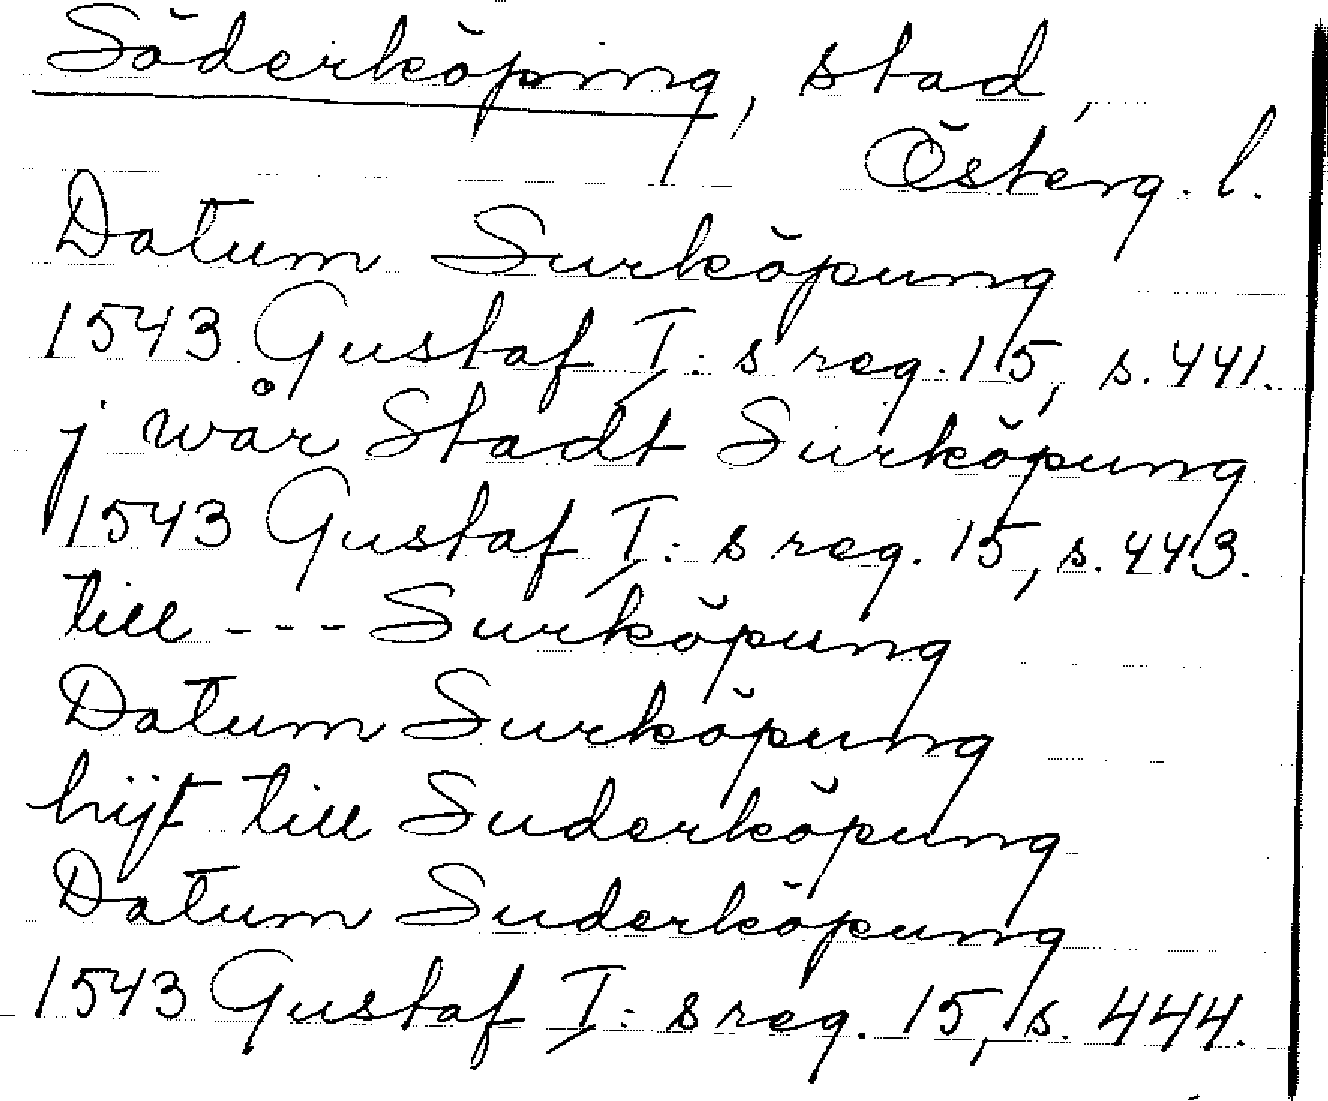 Söderköping, stad,
Österg. l.
Datum Surköpung
1543 Gustaf I:s reg. 15, s. 441.
j wår Stadt Surköpung
1543 Gustaf I:s reg. 15, s. 443.
till --- Surköpung
Datum Surköpung
hijt till Suderköpung
Datum Suderköpung
1543 Gustaf I:s reg. 15, s. 444.